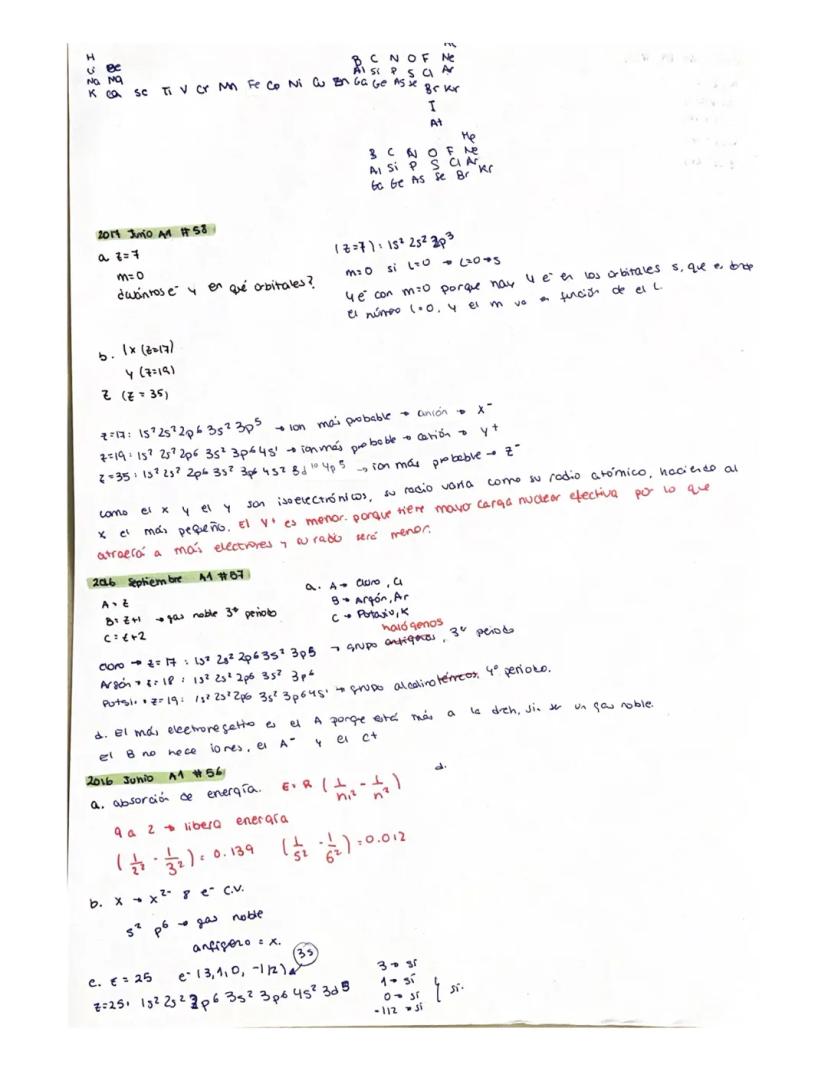 H
Li Be B C N O F Ne
Na Mg Al Si P S Cl Ar
K Ca Sc Ti V Cr Mn Fe Co Ni Cu Zn Ga Ge As Se Br Kr
I
At
He
B C N O F Ne
Al Si P S Cl Ar
Ga Ge As Se Br Kr
2014 Junio A1 #58
a. z=7
m=0
¿Cuántos e⁻ y en qué orbitales?
(z=7): 1s² 2s² 2p³
m=0 si L=0 → L=0→s
4 e⁻ con m=0 porque hay 4 e⁻ en los orbitales s, que e
el número l=0, y el m va en función de el L.
b. X (z=17)
Y (z=19)
Z (z=35)
z=17: 1s² 2s² 2p⁶ 3s² 3p⁵ → ion más probable → anión → X⁻
z=19: 1s² 2s² 2p⁶ 3s² 3p⁶ 4s¹ → ion más probable → catión → Y+
z=35: 1s² 2s² 2p⁶ 3s² 3p⁶ 4s² 3d¹⁰ 4p⁵ → ion más probable → Z⁻
como el X y el Y son isoelectrónicos, su radio varía como su radio atómico, haciendo al
X el más pequeño. El Y⁺ es menor. porque tiene mayor carga nuclear efectiva por lo que
atraerá a más electrones y su radio será menor.
2016 Septiembre A1 #57
A = Z
B = Z+1 → gas noble 3er periodo
C = Z+2
a. A → Cloro, Cl
B → Argón, Ar
C → Potasio, K
halógenos
Cloro → z=17: 1s² 2s² 2p⁶ 3s² 3p5 → grupo anfígenos, 3er periodo
Argón → z=18: 1s² 2s² 2p6 3s² 3p⁶
Potsio → z=19: 1s² 2s² 2p6 3s² 3p6 4s¹ → grupo alcalinotérreos, 4º periodo.
d. El más electronegativo es el A porque está más a la drch, sin ser un gas noble.
El B no hace iones, el A⁻ y el C+
2016 Junio A1 #56
a. absorción de energía. E = R (1/n₁² - 1/n²)
d.
4 a 2 → libera energía
(1/2² - 1/3²) = 0.139 (1/5² - 1/6²) = 0.012
b. X → X²⁻ 8 e⁻ C.V.
s² p⁶ → gas noble
anfígeno = X.
c. z = 25 e⁻ (3,1,0,-1/2) 3s
z=25: 1s² 2s² 2p⁶ 3s² 3p⁶ 4s² 3d⁵
3 → sí
1 → sí
0 → sí
-1/2 → sí
sí.